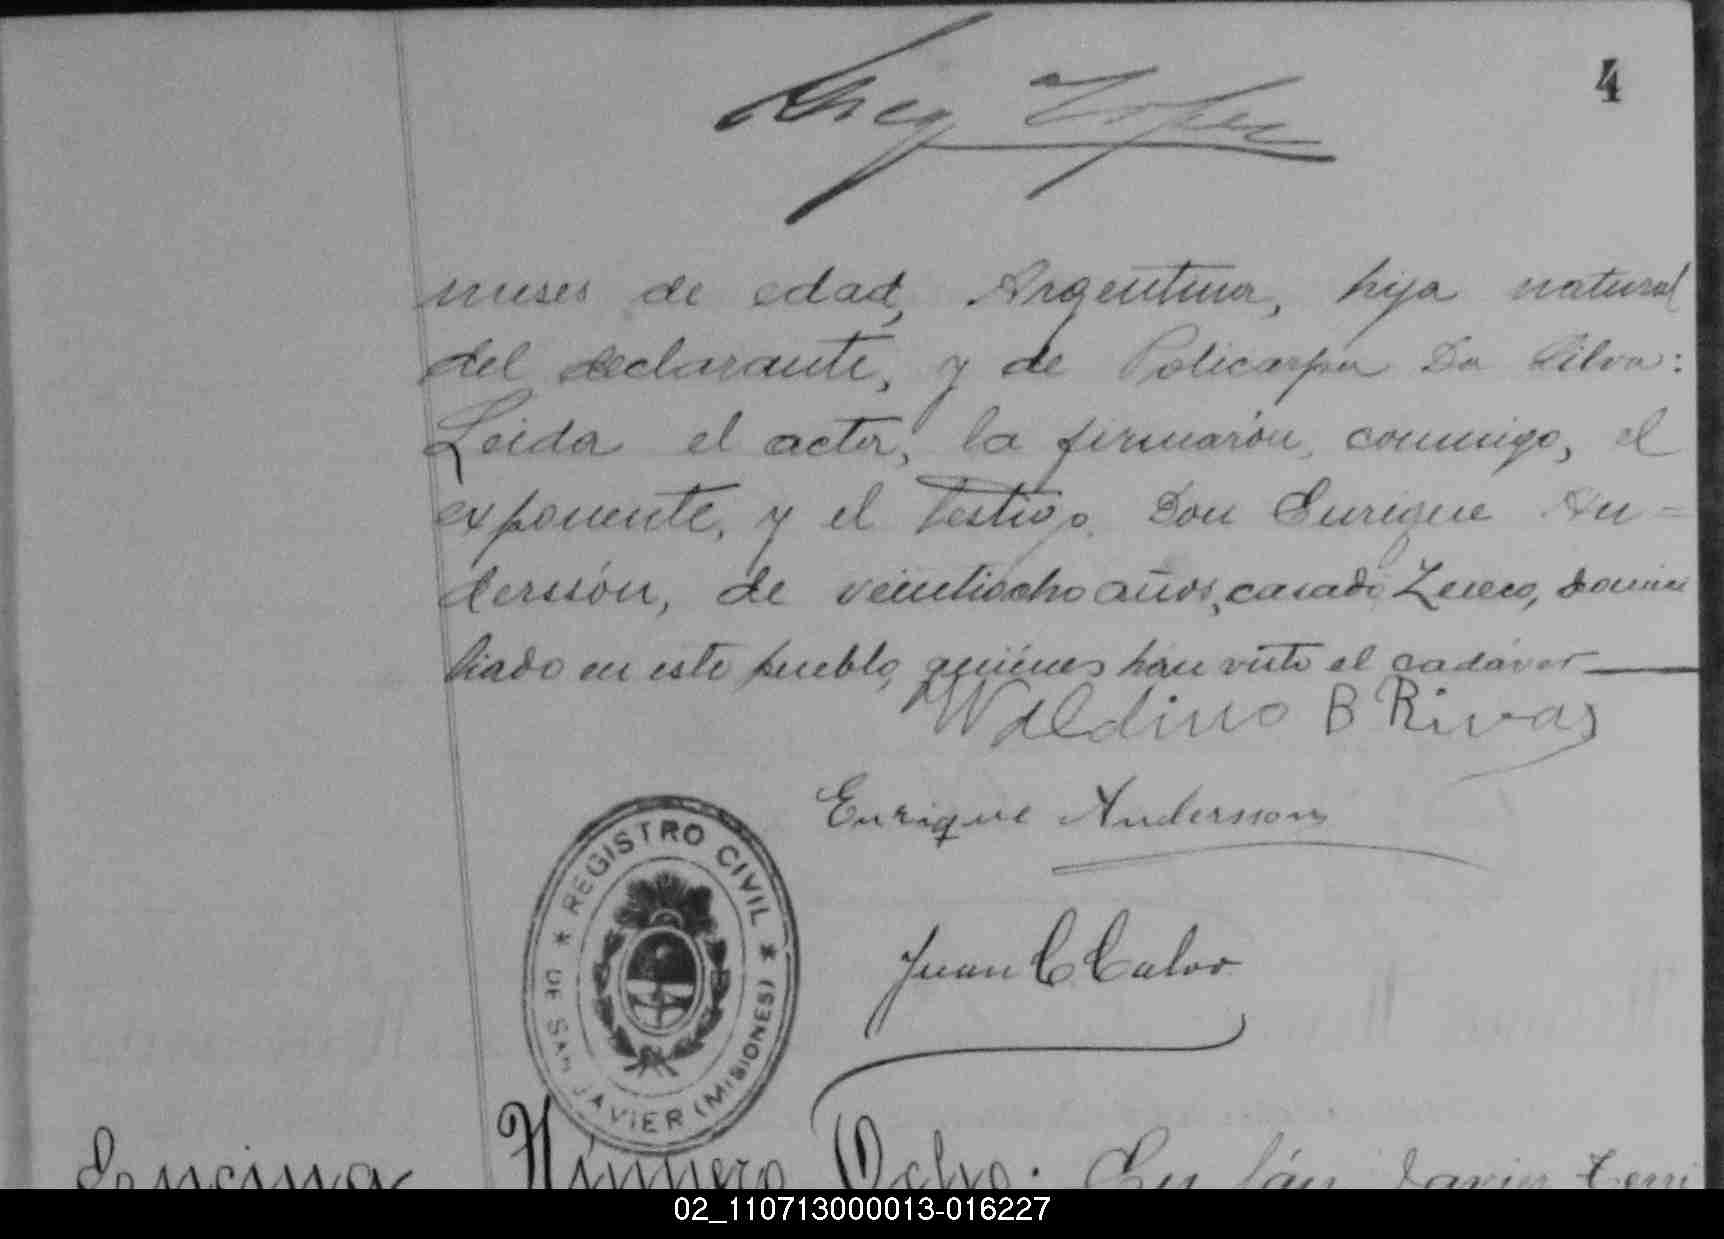 4
López
meses de edad, Argentina, hija natural
del declarante, y de Policarpa Da Silva:
Leida el acta, la firmarón, conmigo, el
exponente, y el testigo Don Enrique An=
dersson, de veintiocho años, casado Zueco, domici
liado en este pueblo, quiénes han visto el cadáver
Waldino B Rivas
Enrique Andersson
Juan C Calvo
* REGISTRO CIVIL *
DE SAN JAVIER (MISIONES)
Encina Número Ocho: En Sán Javier Terri
02_110713000013-016227